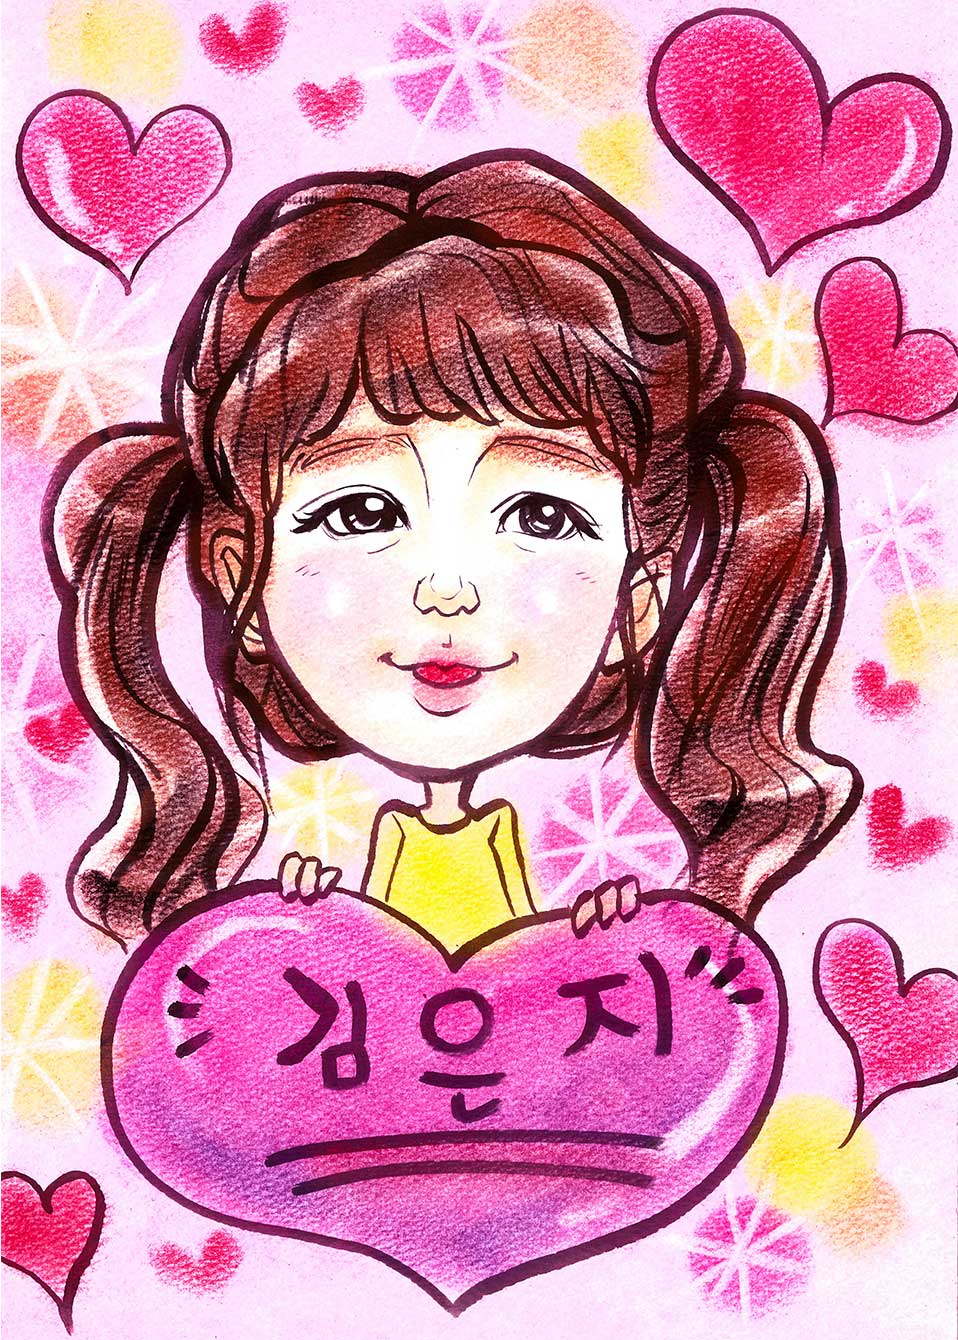 김은지